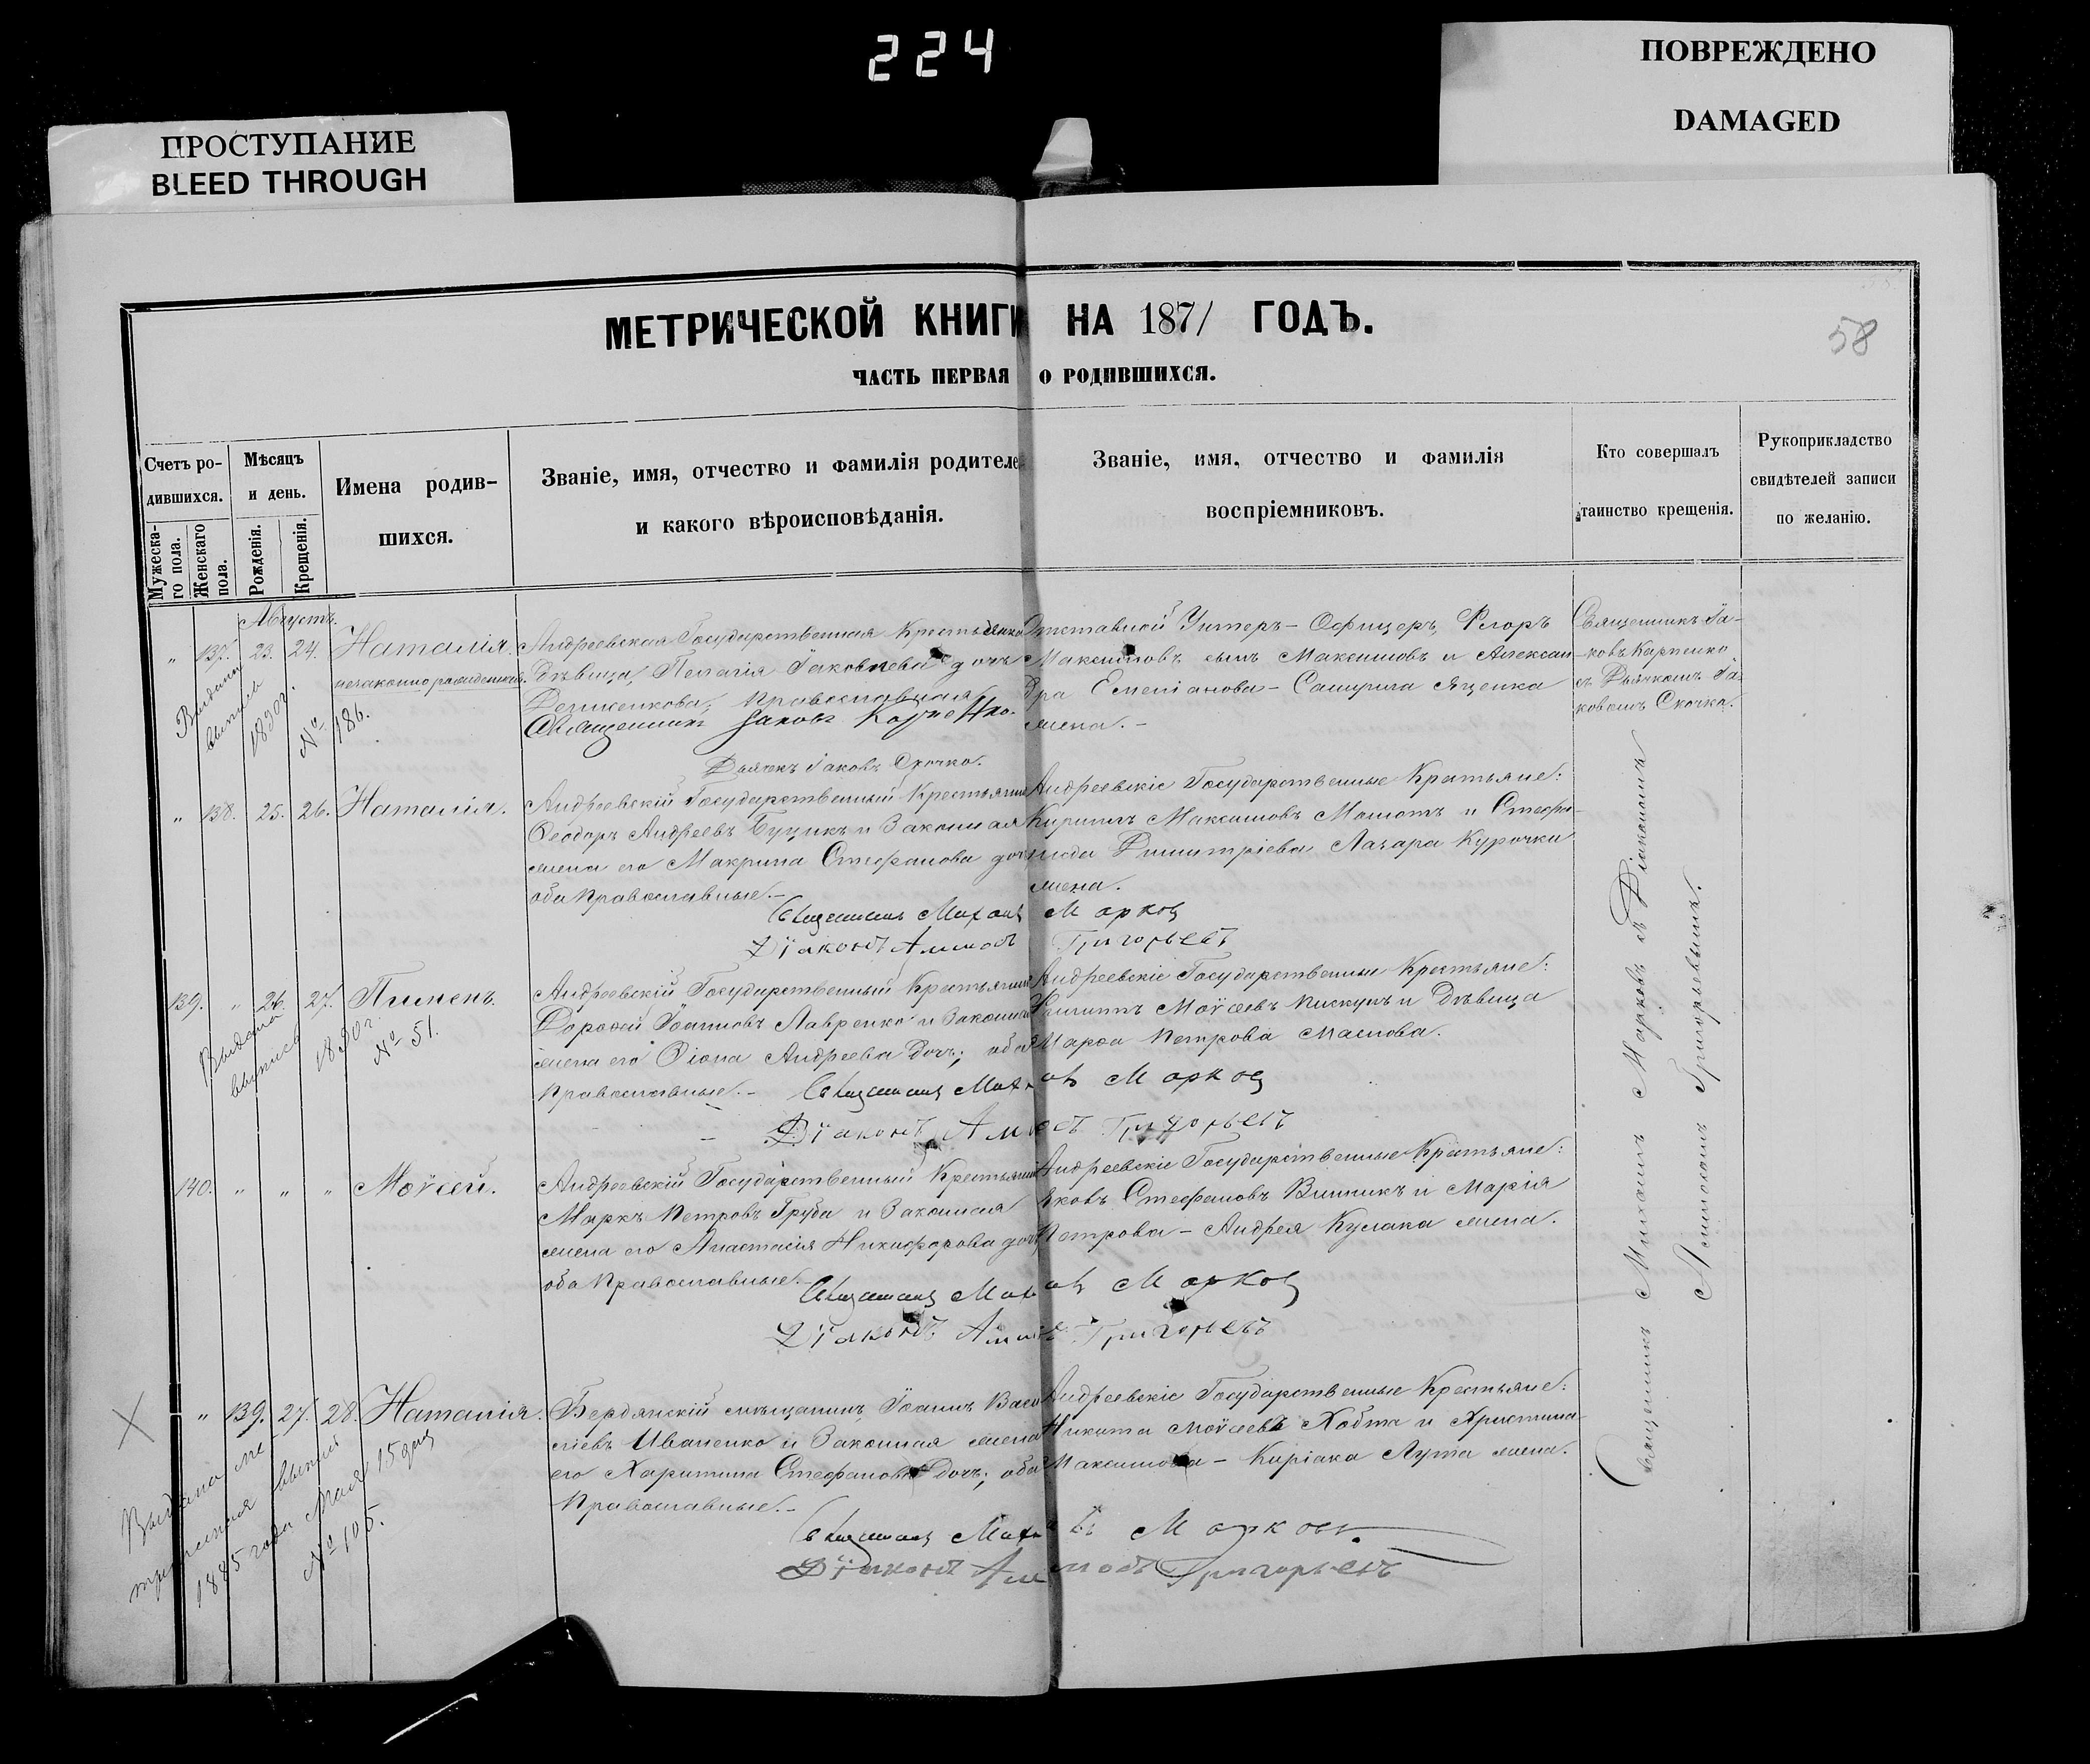 224
ПОВРЕЖДЕНО
DAMAGED
ПРОСТУПАНИЕ
BLEED THROUGH
МЕТРИЧЕСКОЙ КНИГИ НА 1871 ГОДЪ.
58
ЧАСТЬ ПЕРВАЯ О РОДИВШИХСЯ.
Счетъ ро-
дившихся.
Мужеска-
го пола.
Женскаго
пола.
Мѣсяцъ
и день.
Рожденія.
Крещенія.
Имена родив-
шихся.
Званіе, имя, отчество и фамилія родителе
и какого вѣроисповѣданія.
Званіе, имя, отчество и фамилія
воспріемниковъ.
Кто совершалъ
таинство крещенія.
Рукоприкладство
свидѣтелей записи
по желанію.
Августъ.
„ 137. 23. 24. Наталія.
незаконнорожденная.
Выдана
выпись
1890г.
№
186.
Андреевская Государственная Крестьянка
Дѣвица, Пелагія Іаковлева дочь
Православная
Священникъ Іаковъ Карпенко.
Дьячекъ Іаковъ Скочко.
Отставной Унтеръ-Офицеръ, Егоръ
Максимовъ сынъ Максимовъ и Алексан-
дра Емеліанова - Яценка
жена. -
Священникъ Іа-
ковъ Карпенко
съ Дьячкомъ Іа-
ковомъ Скочко.
„ 138. 25. 26. Наталія.
Андреевскій Государственный Крестьянинъ
Ѳеодоръ Андреевъ Буцикъ и Законная
жена его Макрина Стефанова дочь
оба Православные. -
Священникъ Михаилъ Марковъ
Діаконъ Аммосъ Григорьевъ
Андреевскіе Государственные Крестьяне:
Кириллъ Максимовъ Молотъ и Стефа-
нида Димитріева, Лазаря Курочки
жена.
139. „ 26. 27. Пименъ.
Выдана
выпись
1890г.
№ 51.
Андреевскій Государственный Крестьянинъ
Дороѳей Іоанновъ Лавренко и Законная
жена его Андреева дочь; оба
Православные. -
Священникъ Михаилъ Марковъ
Діаконъ Аммосъ Григорьевъ
Андреевскіе Государственные Крестьяне:
Филиппъ Моѵсеевъ Пискунъ и Дѣвица
Марѳа Петрова Маслова.
140. „ „ „ Моѵсей.
Андреевскій Государственный Крестьянинъ
Маркъ Петровъ Груба и Законная
жена его Анастасія Никифорова дочь
оба Православные. -
Священникъ Михаилъ Марковъ
Діаконъ Аммосъ Григорьевъ
Андреевскіе Государственные Крестьяне:
Яковъ Стефановъ Винникъ и Марія
Петрова - Андрея Кулака жена.
„ 139. 27. 28. Наталія.
Выдана ме-
трическая выпись
1885 года Мая 15 дня
№ 105.
Бердянскій мѣщанинъ, Іоаннъ Васи-
ліевъ Иваненко и Законная жена
его Харитина Стефанова дочь; оба
Православные. -
Священникъ Михаилъ Марковъ
Діаконъ Аммосъ Григорьевъ
Андреевскіе Государственные Крестьяне:
Никита Моѵсеевъ Хобта и Христина
Максимова - Киріака Лута жена.
Священникъ Михаилъ Марковъ съ Діакономъ
Аммосомъ Григорьевымъ.